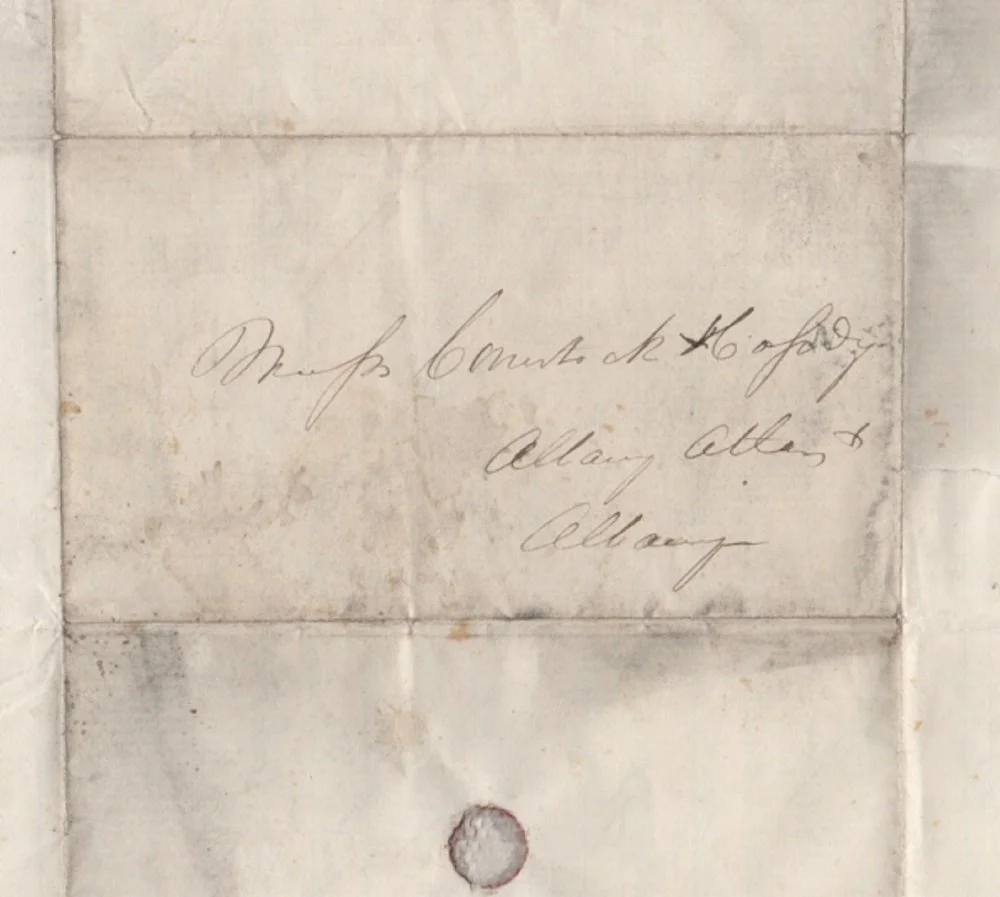 Messrs Comstock & Cassidy
Albany Atlas
Albany